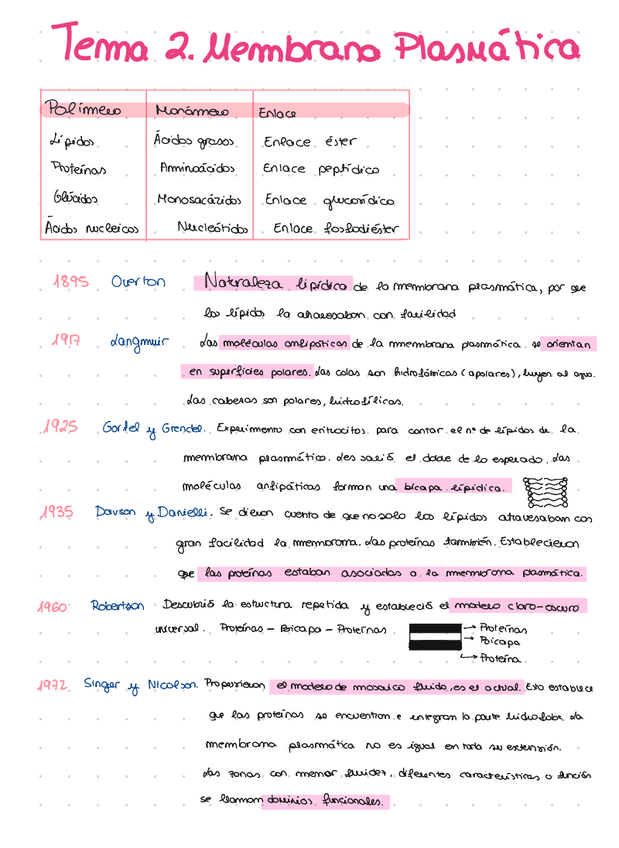 Tema 2. Membrana Plasmática
Polímero Monómero Enlace
Lípidos Ácidos grasos Enlace éster
Proteínas Aminoácidos Enlace peptídico
Glúcidos Monosacáridos Enlace glucosídico
Ácidos nucleicos Nucleótidos Enlace fosfodiéster
1895 Overton Naturaleza lipídica de la membrana plasmática, por que
los lípidos la atravesaban con facilidad
1917 Langmuir Las moléculas anfipáticas de la membrana plasmática se orientan
en superficies polares. Las colas son hidrofóbicas (apolares), huyen al agua.
Las cabezas son polares, hidrofílicas.
1925 Gortel y Grendel. Experimento con eritrocitos para contar el nº de lípidos de la
membrana plasmática. Les salió el doble de lo esperado. Las
moléculas anfipáticas forman una bicapa lipídica.
1935 Davson y Danielli. Se dieron cuenta de que no solo los lípidos atravesaban con
gran facilidad la membrana. Las proteínas también. Establecieron
que las proteínas estaban asociadas a la membrana plasmática.
1960 Robertson Descubrió la estructura repetida y estableció el modelo claro-oscuro
universal. Proteínas - Bicapa - Proteínas → Proteínas
→ Bicapa
→ Proteína
1972 Singer y Nicolson. Propusieron el modelo de mosaico fluido, es el actual. Esto establece
que las proteínas se encuentran e integran la parte hidrofoba. La
membrana plasmática no es igual en toda su extensión.
Las zonas con menor fluidez, diferentes características o función
se llaman dominios funcionales.